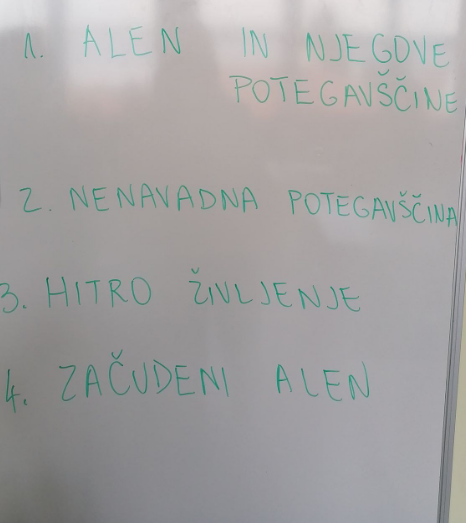 1. ALEN IN NJEGOVE
POTEGAVŠČINE
2. NENAVADNA POTEGAVŠČINA
3. HITRO ŽIVLJENJE
4. ZAČUDENI ALEN